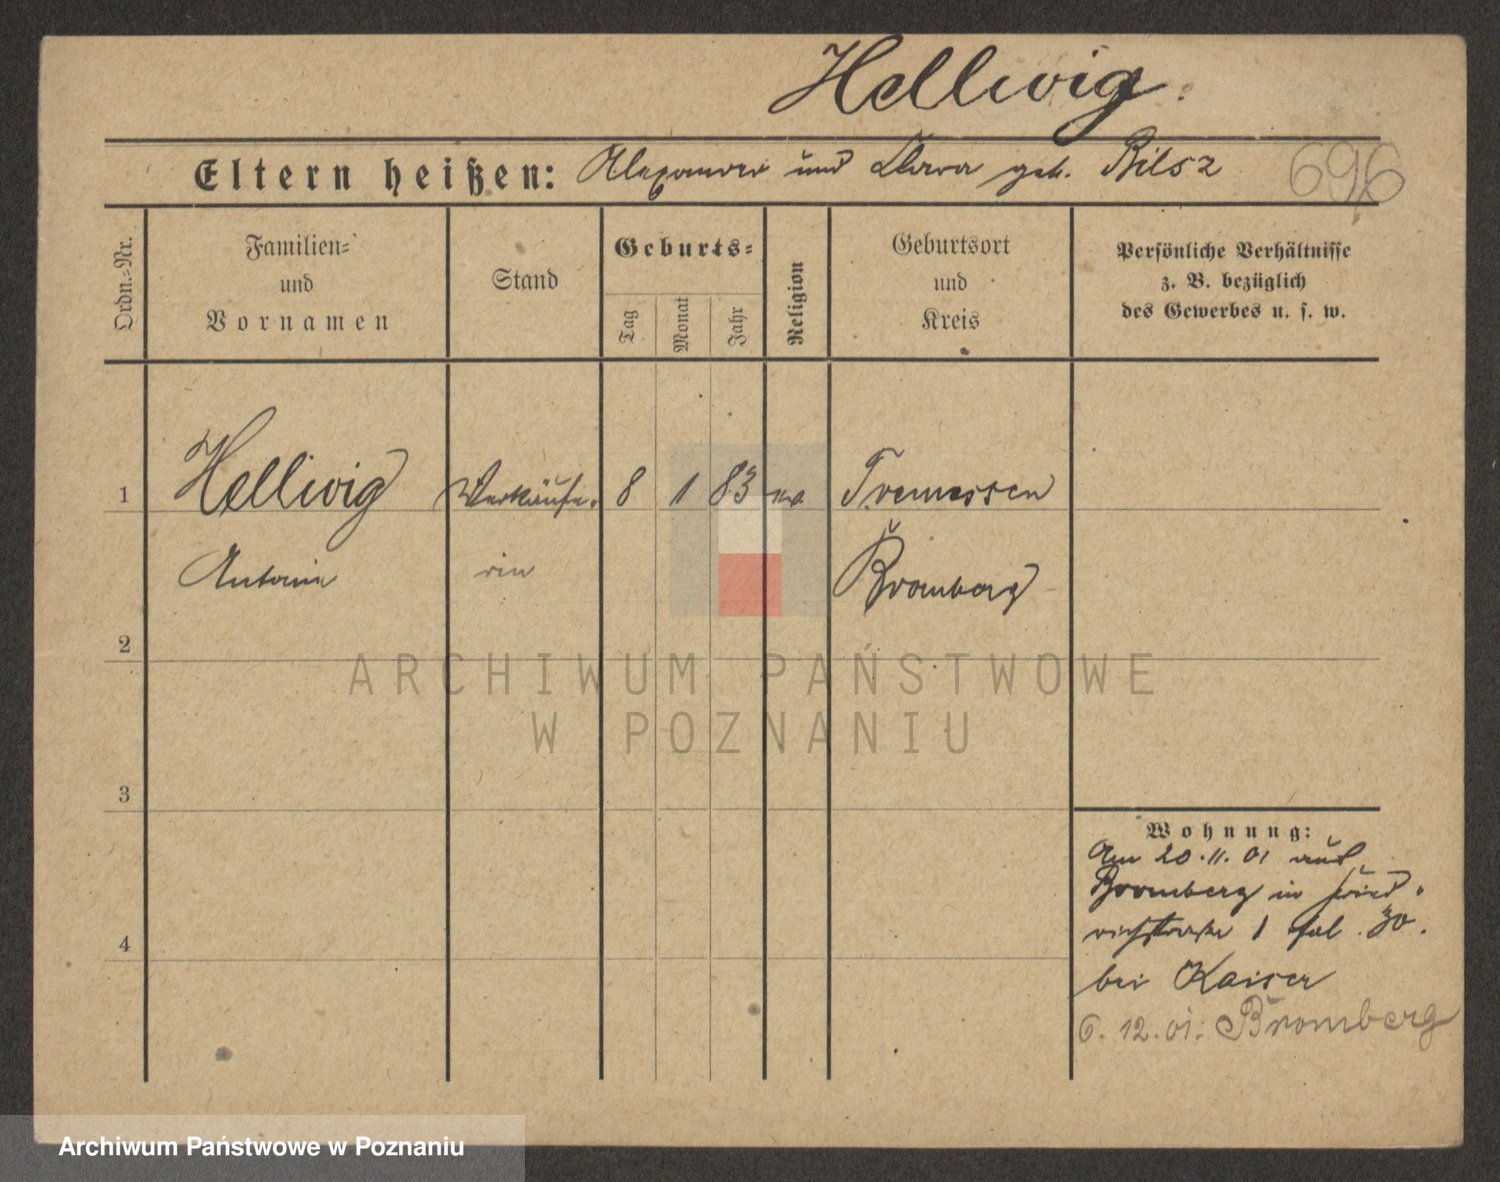 Hellwig.
Eltern heißen: Alexander und Clara geb. Bilsz
696
Ordn.-Nr.
Familien-
und
Vornamen
Stand
Geburts-
Tag
Monat
Jahr
Religion
Geburtsort
und
Kreis
Persönliche Verhältnisse
z. B. bezüglich
des Gewerbes u. s. w.
1 Hellwig Verkäufe- 8 1 83 ev Tremessen
Antonie rin Bromberg
2
ARCHIWUM PAŃSTWOWE
W POZNANIU
3
Wohnung:
Am 20.11.01 aus
Bromberg in Fried-
richstraße 1 30.
4
bei Kaiser
6.12.01. Bromberg
Archiwum Państwowe w Poznaniu